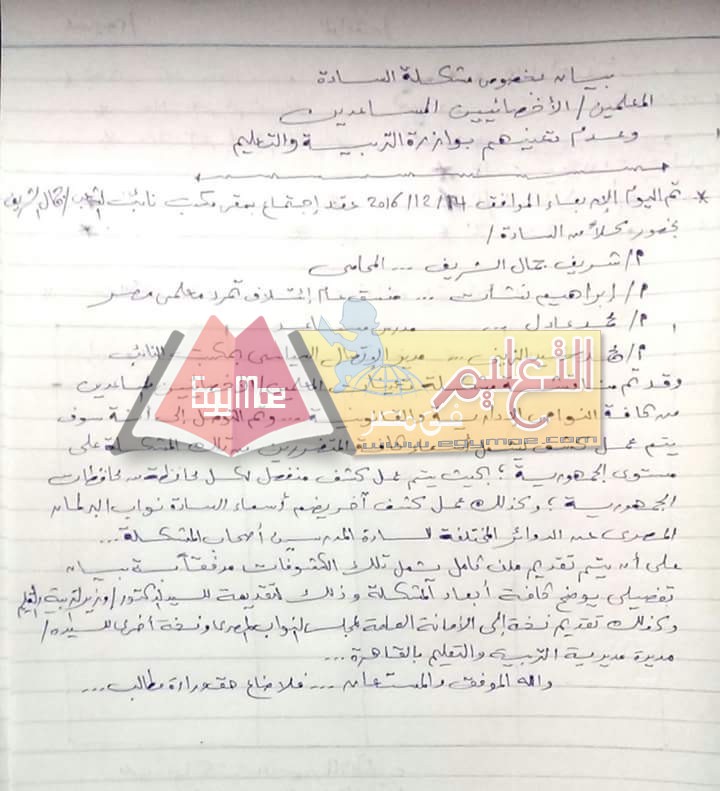 بيان بخصوص مشكلة السادة
المعلمين / الأخصائيين المساعدين
وعدم تعينهم بوازرة التربية والتعليم
* تم اليوم الموافق 2016/12/14 عقد إجتماع بمقر مكتب نائب الشعب / جمال الشريف
بحضور كلاً من السادة /
م/ شريف جمال الشريف ... المحامى
م/ ابراهيم نشأت ... منسق عام إئتلاف تمرد معلمى مصر
م/ محمد عادل ... مدرس مساعد
... مدير الإتصال السياسى بمكتب النائب
وقد تم المعلمين
من كافة النواحى الإدارية والقانونية ... وتم التوصل إلى أنه سوف
يتم عمل كشف كافة المتضررين من تلك المشكلة على
مستوى الجمهورية ؛ بحيث يتم عمل كشف منفصل لكل محافظة من محافظات
الجمهورية ؛ وكذلك عمل كشف آخر يضم أسماء السادة نواب البرلمان
المصرى عن الدوائر المختلفة للسادة المدرسين أصحاب المشكلة ...
على أن يتم تقديم ملف كامل يشمل تلك الكشوفات مرفقاً به بيان
تفصيلى يوضح كافة أبعاد المشكلة وذلك لتقديمه للسيد الدكتور / وزير التربية والتعليم
وكذلك تقديم نسخة إلى الأمانة العامة لمجلس النواب المصرى ونسخة أخرى للسيده /
مديرة مديرية التربية والتعليم بالقاهرة ...
والله الموفق والمستعان ... فلا ضاع حق وراءة مطالب ...
التعليم
فى مصر
www.egyme.com